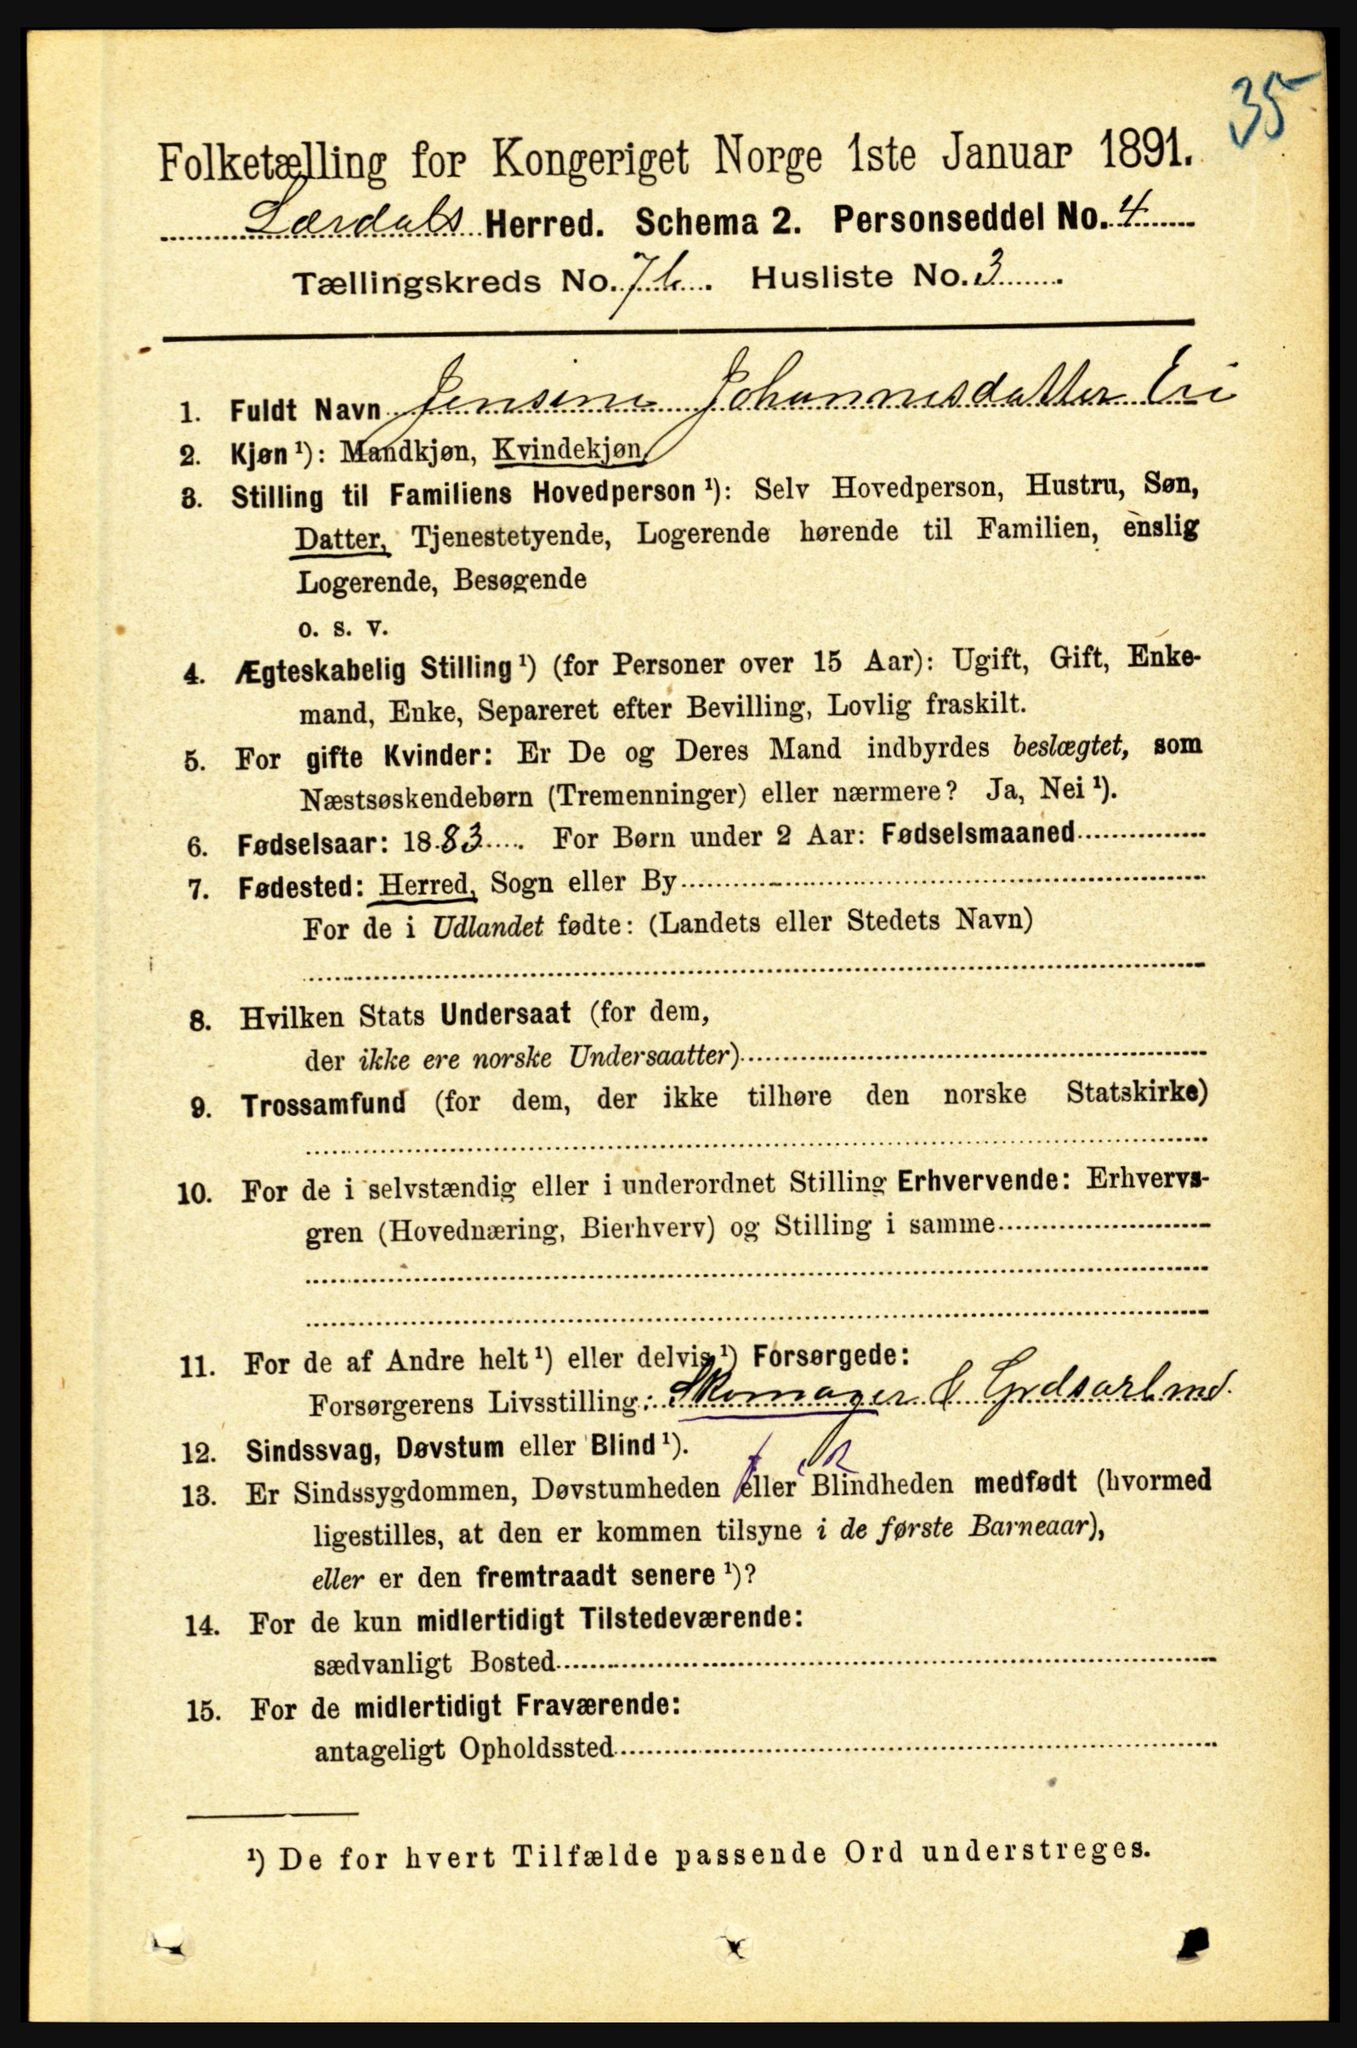 35
Folketælling for Kongeriget Norge 1ste Januar 1891.
Lærdals Herred. Schema 2. Personseddel No. 4
Tællingskreds No. 7b. Husliste No. 3
1. Fuldt Navn Jensine Johannesdatter Eri
2. Kjøn ¹): Mandkjøn, Kvindekjøn,
3. Stilling til Familiens Hovedperson ¹): Selv Hovedperson, Hustru, Søn,
Datter, Tjenestetyende, Logerende hørende til Familien, enslig
Logerende, Besøgende
o. s. v.
4. Ægteskabelig Stilling ¹) (for Personer over 15 Aar): Ugift, Gift, Enke-
mand, Enke, Separeret efter Bevilling, Lovlig fraskilt.
5. For gifte Kvinder: Er De og Deres Mand indbyrdes beslægtet, som
Næstsøskendebørn (Tremenninger) eller nærmere? Ja, Nei ¹).
6. Fødselsaar: 1883. For Børn under 2 Aar: Fødselsmaaned
7. Fødested: Herred, Sogn eller By
For de i Udlandet fødte: (Landets eller Stedets Navn)
8. Hvilken Stats Undersaat (for dem,
der ikke ere norske Undersaatter)
9. Trossamfund (for dem, der ikke tilhøre den norske Statskirke)
10. For de i selvstændig eller i underordnet Stilling Erhvervende: Erhvervs-
gren (Hovednæring, Bierhverv) og Stilling i samme
11. For de af Andre helt ¹) eller delvis ¹) Forsørgede:
Forsørgerens Livsstilling: Skomager & Jordsarbmd.
12. Sindssvag, Døvstum eller Blind ¹).
13. Er Sindssygdommen, Døvstumheden eller Blindheden medfødt (hvormed
ligestilles, at den er kommen tilsyne i de første Barneaar),
eller er den fremtraadt senere ¹)?
14. For de kun midlertidigt Tilstedeværende:
sædvanligt Bosted
15. For de midlertidigt Fraværende:
antageligt Opholdssted
¹) De for hvert Tilfælde passende Ord understreges.